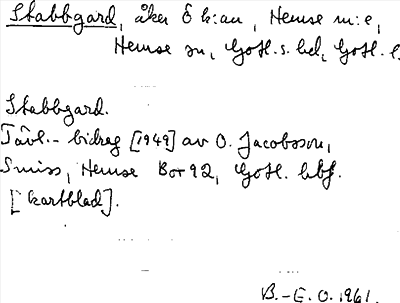 Stabbgard, åker Ö k:an, Hemse m:e,
Hemse sn, Gotl. s. hd, Gotl. l.
Stabbgard.
Tävl.-bidrag [1949] av O. Jacobsson,
Smiss, Hemse Box 92, Gotl. hbf.
[kartblad].
B.-E. O. 1961.